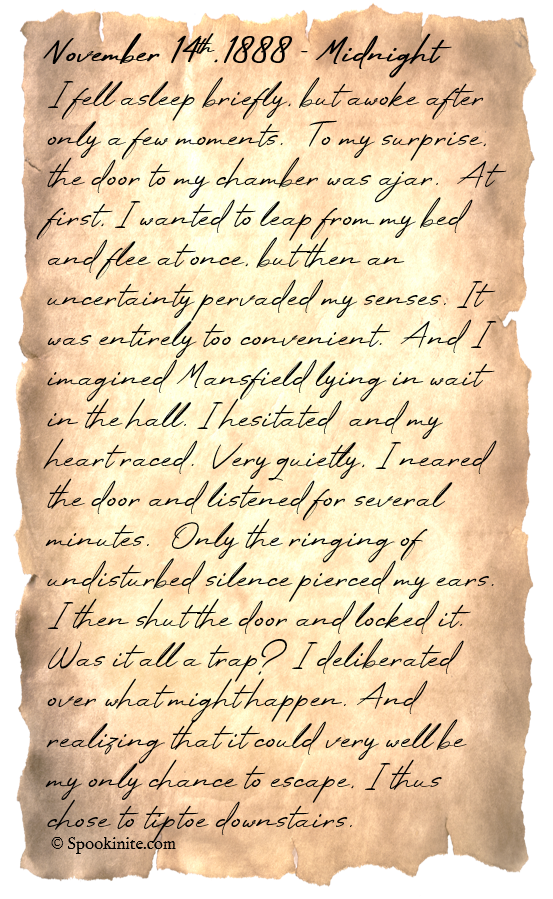 November 14th, 1888 - Midnight
I fell asleep briefly, but awoke after
only a few moments. To my surprise,
the door to my chamber was ajar. At
first, I wanted to leap from my bed
and flee at once, but then an
uncertainty pervaded my senses. It
was entirely too convenient. And I
imagined Mansfield lying in wait
in the hall. I hesitated and my
heart raced. Very quietly, I neared
the door and listened for several
minutes. Only the ringing of
undisturbed silence pierced my ears.
I then shut the door and locked it.
Was it all a trap? I deliberated
over what might happen. And
realizing that it could very well be
my only chance to escape, I thus
chose to tiptoe downstairs.
© Spookinite.com